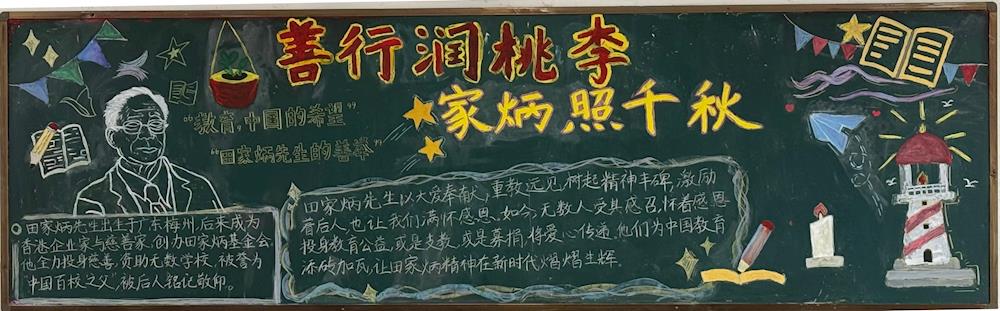 善行润桃李
家炳照千秋
"教育,中国的希望"
"田家炳先生的善举"
田家炳先生出生于广东梅州,后来成为
香港企业家与慈善家,创办田家炳基金会,
他全力投身慈善,资助无数学校,被誉为
中国百校之父",被后人铭记敬仰。
田家炳先生以大爱奉献,重教远见,树起精神丰碑,激励
着后人,也让我们满怀感恩。如今,无数人受其感召,怀着感恩
投身教育公益,或是支教,或是募捐,将爱心传递,他们为中国教育
添砖加瓦,让田家炳精神在新时代熠熠生辉.